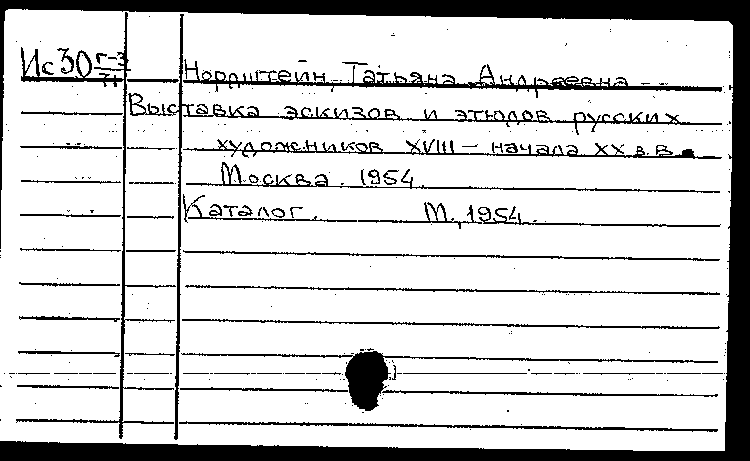 Ис30 Г-3/71 Нордштейн, Татьяна Андреевна
Выставка эскизов и этюдов русских
художников XVIII – начала XX в.в.
Москва. 1954.
Каталог. М., 1954.